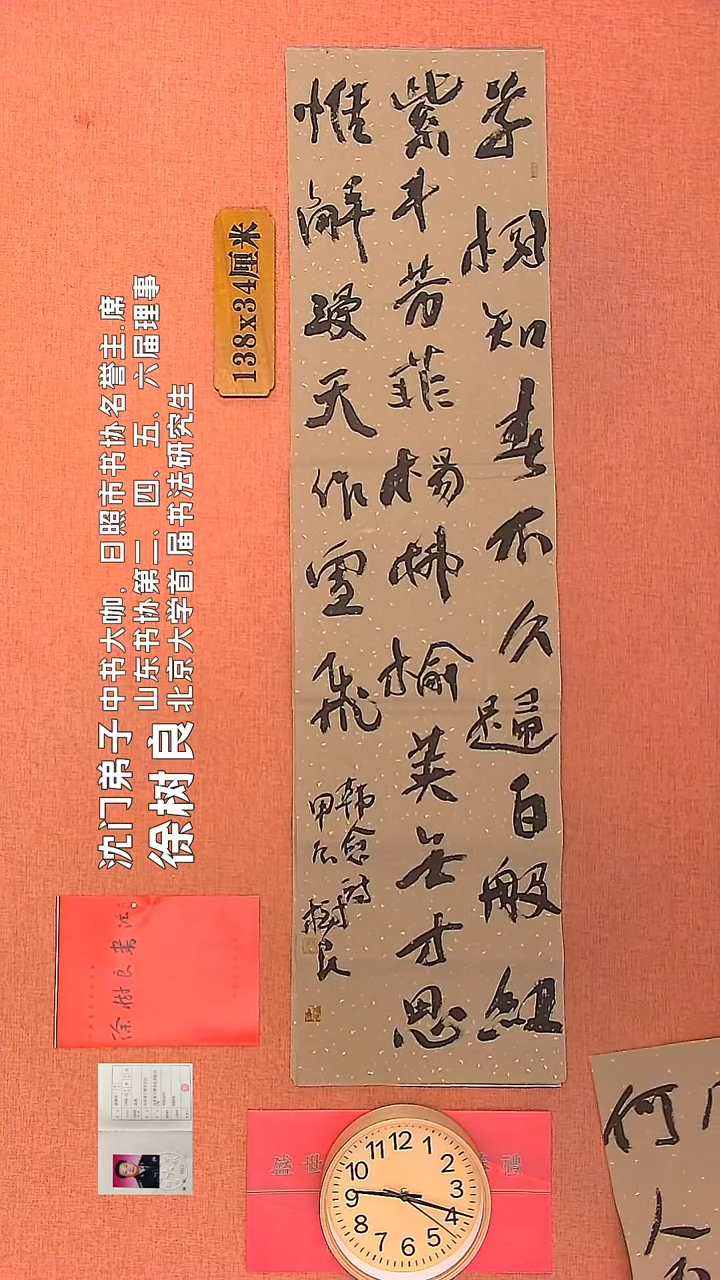 草樹知春不久歸百般紅
紫斗芳菲楊花榆英無才思
惟解漫天作雪飛
韩愈詩
甲辰 樹良
138x34厘米
沈门弟子 中书大咖,日照市书协名誉主.席
山东书协第三、四、五、六届理事
徐树良 北京大学首.届书法研究生
徐樹良書法.
盛世
禮
12
1
2
3
4
5
6
7
8
9
10
11
何
人